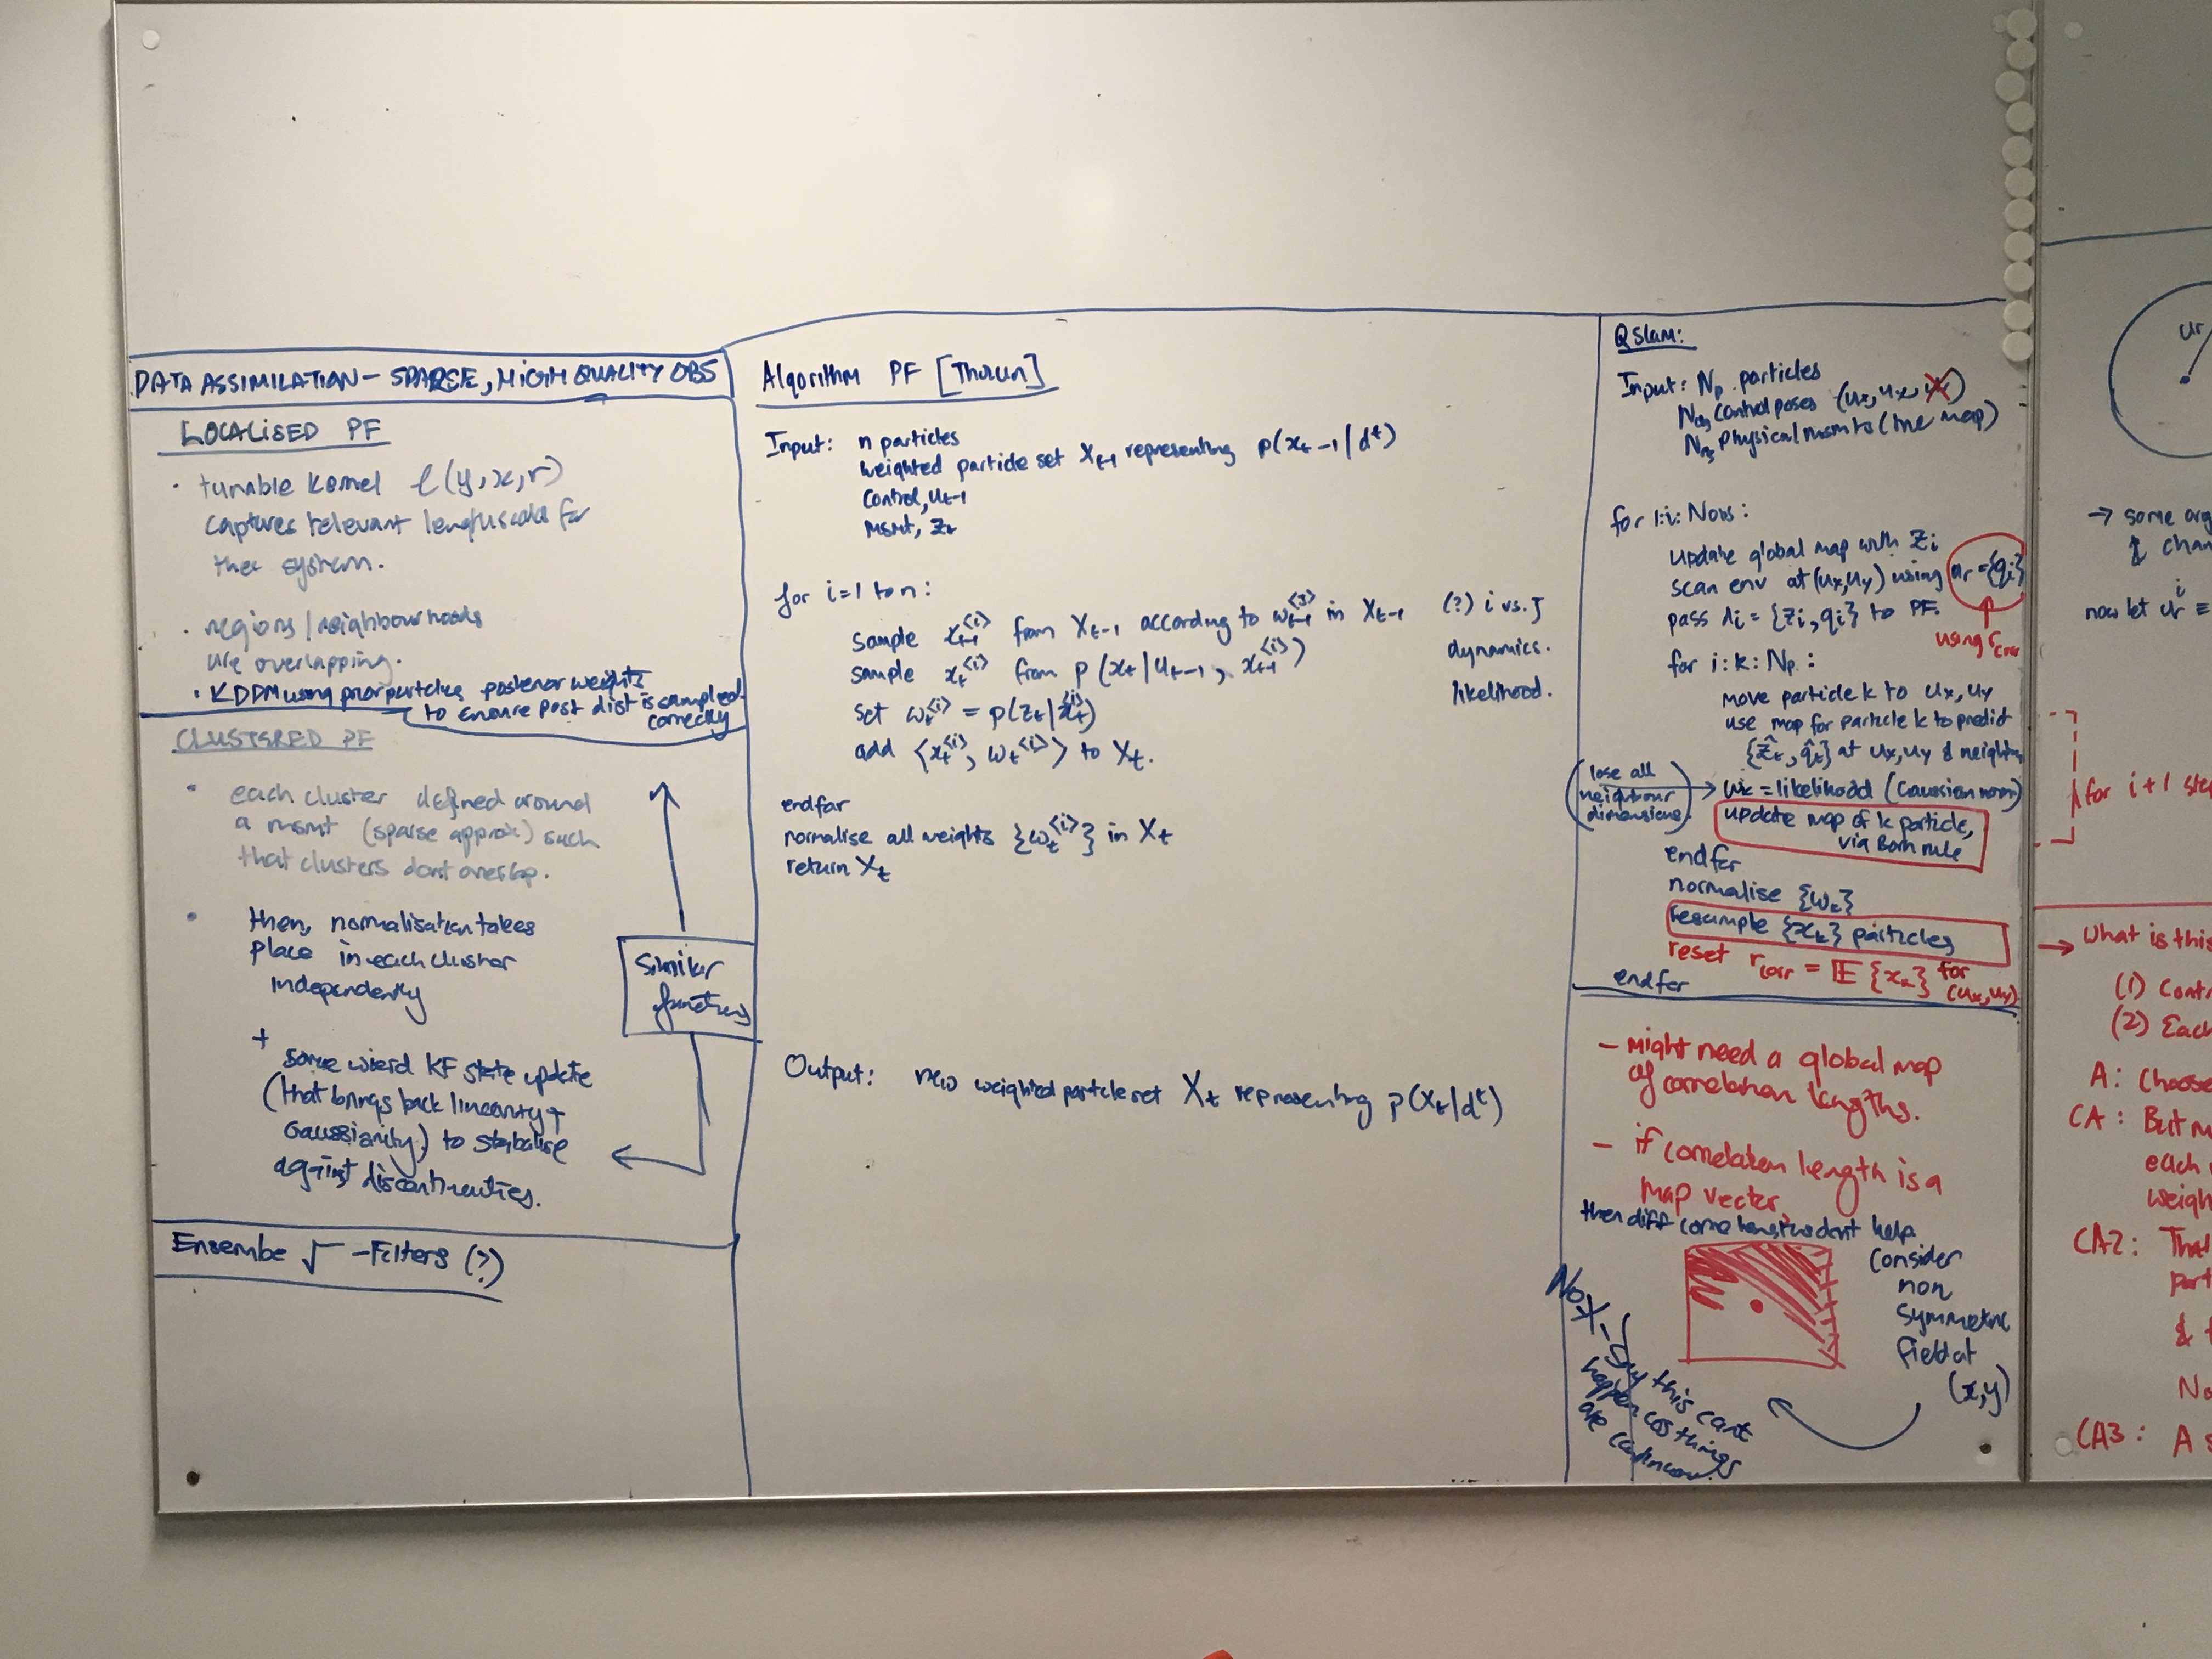 DATA ASSIMILATION - SPARSE, HIGH QUALITY OBS
LOCALISED PF
· tunable kernel ℓ(y,x,r)
captures relevant lengthscales for
thee system.
· regions/neighbourhoods
are overlapping.
· KDDM using prior particles, posterior weights
to ensure post dist is sampled
correctly
CLUSTERED PF
· each cluster defined around
a msmt (sparse approx) such
that clusters dont overlap.
· then, normalisation takes
place in each cluster
independently
+
some wierd KF state update
(that brings back linearity +
Gaussianity) to stabalise
against discontinuities.
Similar
functions
Ensembe √ -Filters (?)
Algorithm PF [Thrun]
Input: n particles
weighted particle set X_{t-1} representing p(x_{t-1}|d^t)
control, u_{t-1}
msmt, z_t
for i=1 to n:
sample x_{t-1}^{<i>} from X_{t-1} according to ω_{t-1}^{<J>} in X_{t-1} (?) i vs. J
sample x_t^{<i>} from p(x_t|u_{t-1}, x_{t-1}^{<i>}) dynamics.
set ω_t^{<i>} = p(z_t|x_t^{<i>}) likelihood.
add <x_t^{<i>}, ω_t^{<i>}> to X_t.
endfor
normalise all weights {ω_t^{<i>}} in X_t
return X_t
Output: new weighted particle set X_t representing p(X_t|d^t)
QSlam:
Input: N_p particles
control poses
physical msmts (the map)
for 1:i:Nobs:
update global map with z_i
scan env at (u_x,u_y) using u_r={q_i}
using r_corr
pass λ_i = {z_i, q_i} to PF.
for i:k:N_p:
move particle k to u_x, u_y
use map for particle k to predict
at u_x,u_y &
(lose all
neighbour
dimensions)
ω_k = likelihood (Gaussian
update map of k particle,
via Born rule
endfor
normalise {ω_k}
resample {x_k} particles
reset r_corr = 𝔼{x_k} for
(u_x,u_y)
endfor
- might need a global map
of correlation lengths.
- if correlation length is a
map vector,
then diff help
Consider
non
symmetric
field at
(x,y)
No X -
say this cant
happen cos things
are
ur
→ some
now let ur ≡
for i+1
→ What is this
(1)
(2) Each
A: Choose
CA: But
each
CA2:
&
CA3: A